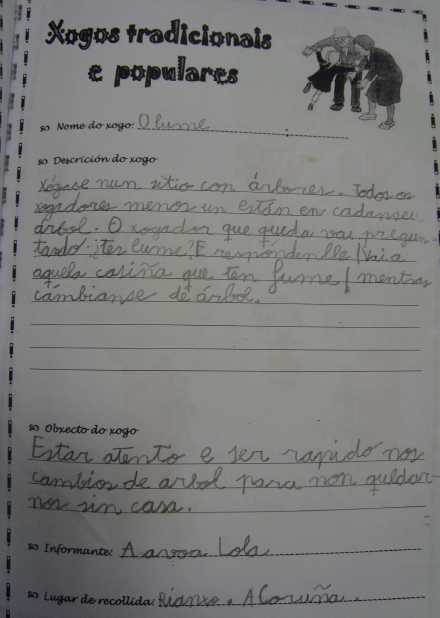 Xogos tradicionais
e populares
Nome do xogo: O lume
Descrición do xogo
Xógase nun sitio con árbores. Todos os
xogadores menos un están en cadanseu
árbol. O xogador que queda vai pregun-
tando: ¿tes lume? E respóndenlle ¡Vai a
aquela casiña que ten fume! mentras
cámbianse de árbol.
Obxecto do xogo
Estar atento e ser rapido nos
cambios de arbol para non quedar-
nos sin casa.
Informante: A avoa Lola
Lugar de recollida: Rianxo. A Coruña.